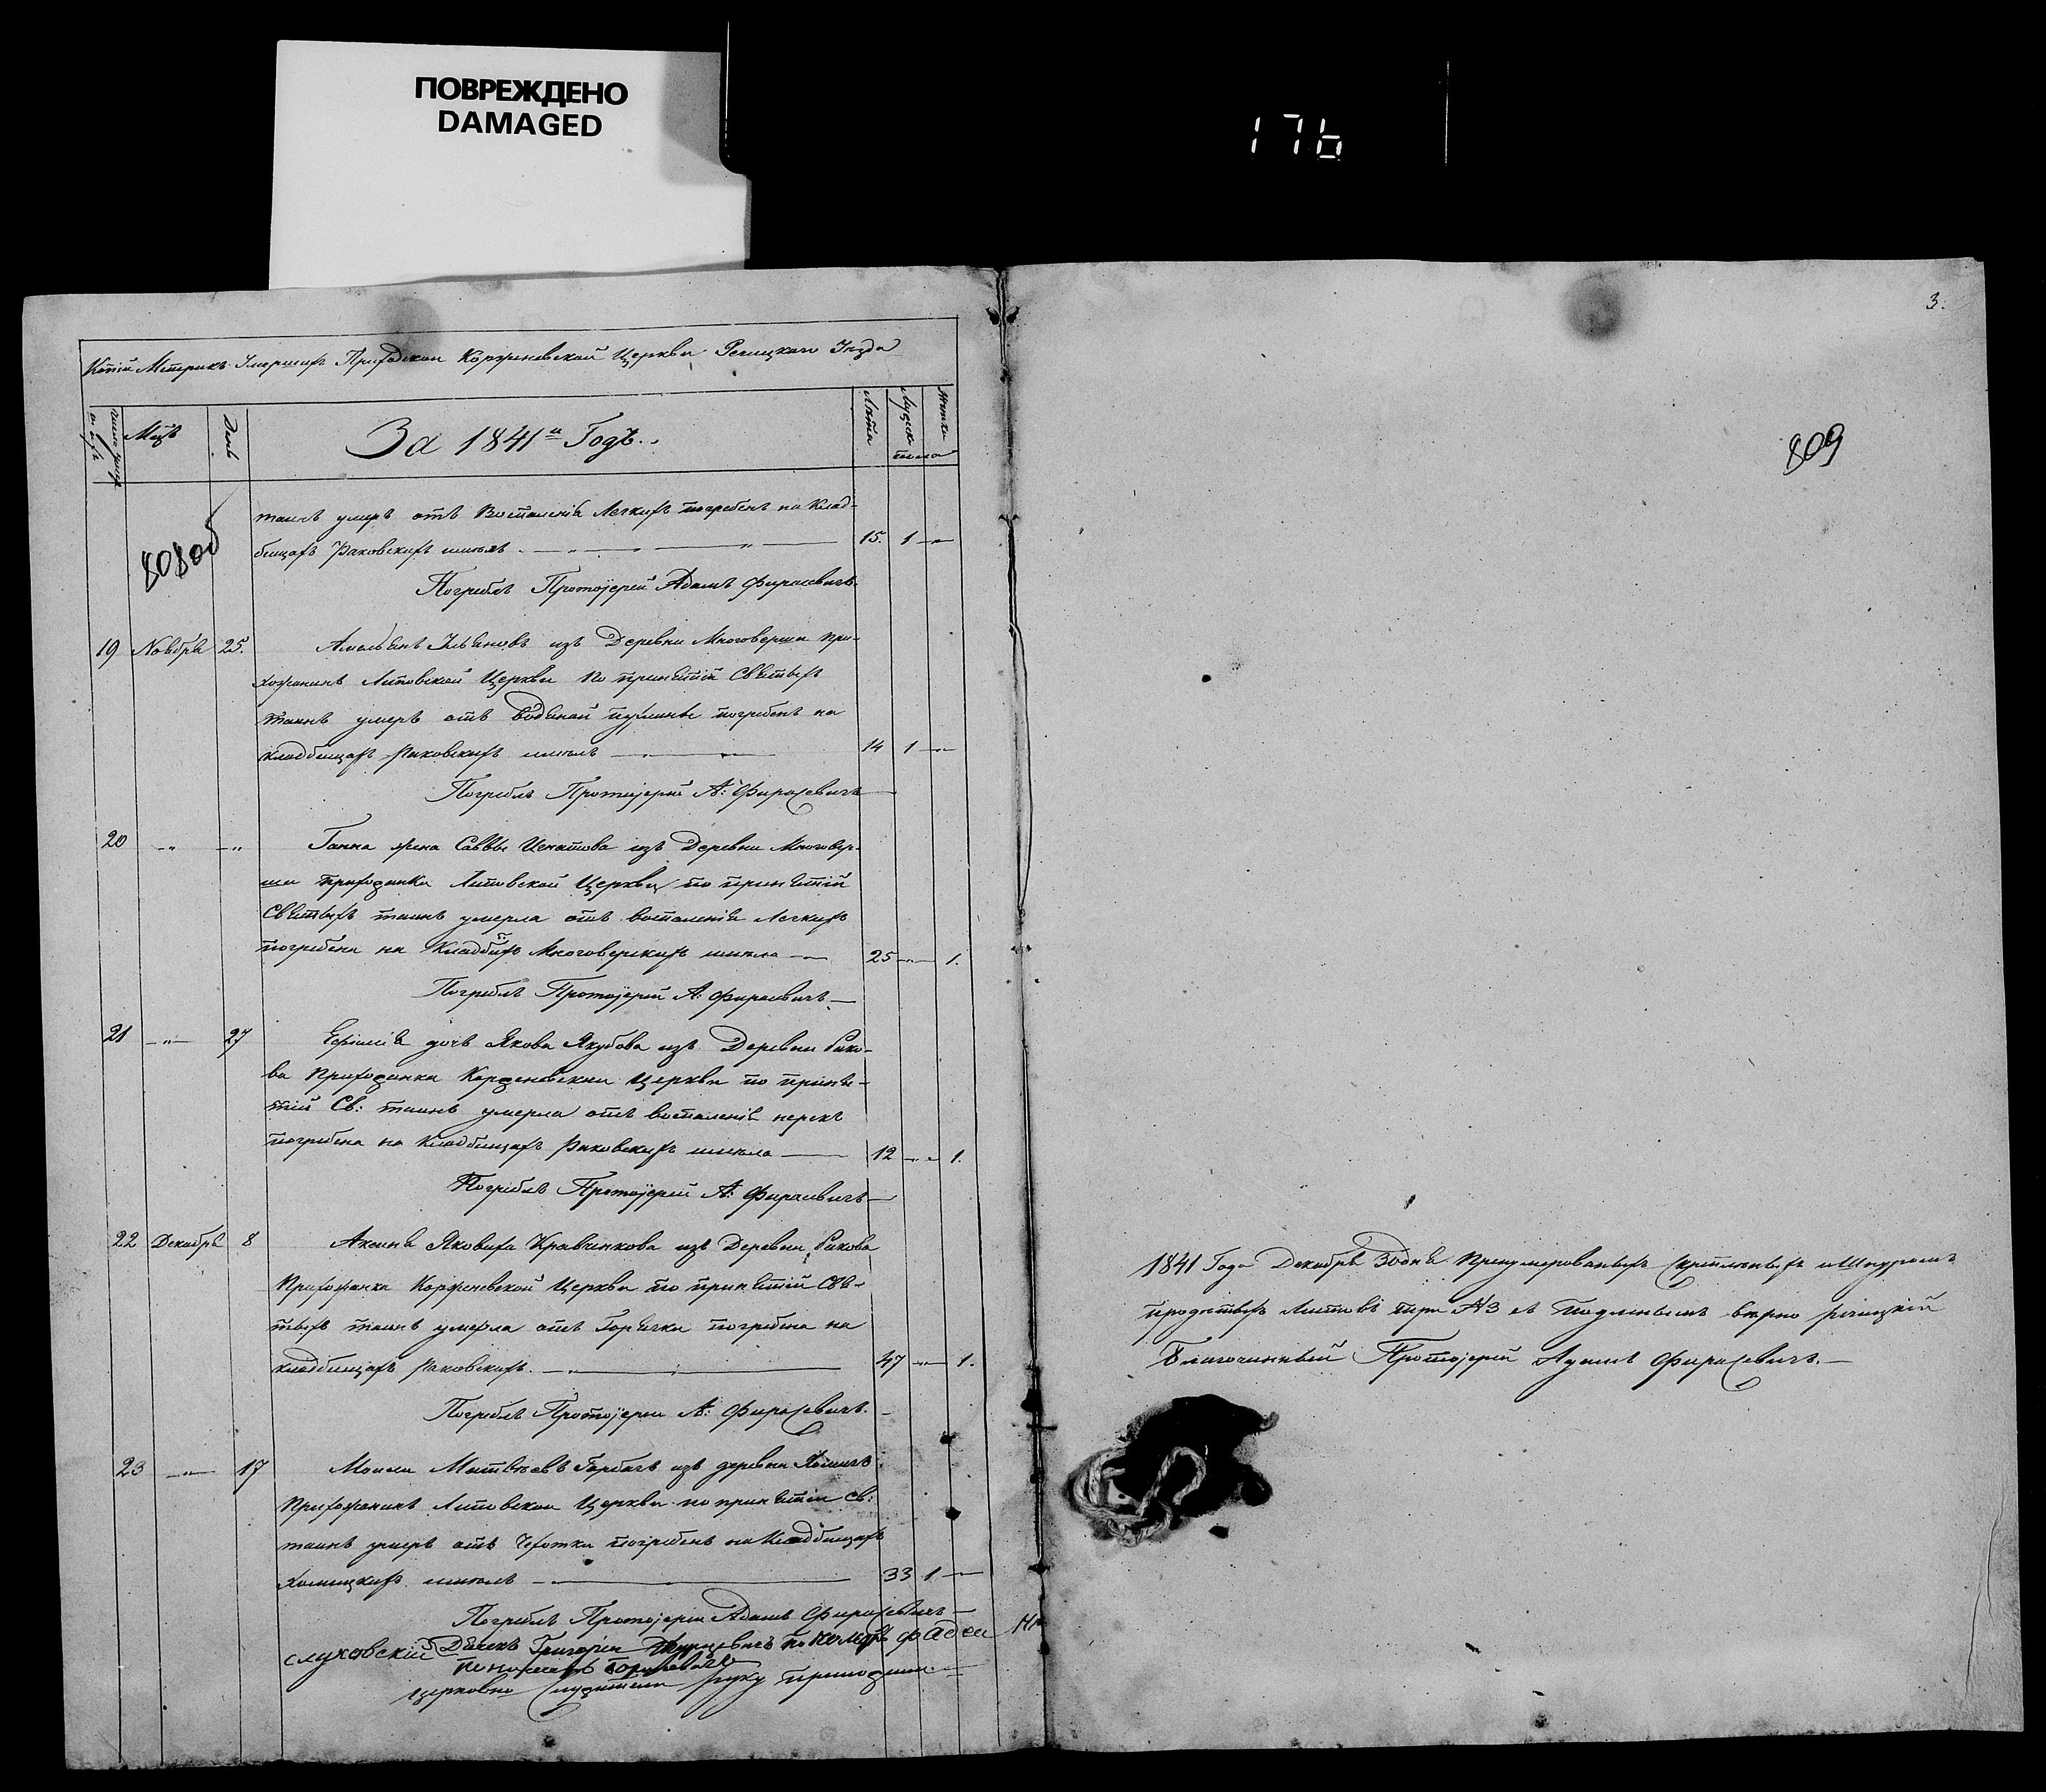 ПОВРЕЖДЕНО
DAMAGED
176
Копія Метрикъ Умершихъ Приходскои Корженевской Церкви Речицкаго Уезда
Число умерш.
Мцъ
День
За 1841й Годъ.
Лѣта
Мужск
Женска
пола
808об
таинъ умеръ отъ Воспаленія Легкихъ погребенъ на Клад-
бищахъ Раковскихъ имѣлъ 15. 1 —
Погребъ Протоіерей Адамъ Фирасевичъ
19 Ноября 25. Амельянъ Ульяновъ изъ Деревни Многоверша при-
хожанинъ Липовской Церкви по принятіи Святыхъ
таинъ умеръ отъ водяной пухлины погребенъ на
кладбищахъ Раковскихъ имѣлъ 14 1 —
Погребъ Протоіерей А: Фирасевичъ
20 —„— —„ Ганна жена Саввы Игнатова изъ Деревни Многовер-
ша прихожанка Липовской Церкви по принятіи
Святыхъ таинъ умерла отъ воспаленія Легкихъ
погребена на Кладбищъ Многовершкихъ имѣла 25 —„— 1.
Погребъ Протоіерей А: Фирасевичъ
21 —„— 27 Ефимія дочь Якова Якубова изъ Деревни Рако-
ва Прихожанка Корженевскои Церкви по приня-
тіи Св: таинъ умерла отъ воспаленія
погребена на Кладбищахъ Раковскихъ имѣла 12 —„— 1.
Погребъ Протоіерей А: Фирасевичъ
22 Декабря 8 Аксинья Яковиха Кравчинкова изъ Деревни Ракова
Прихожанка Корженевской Церкви по принятіи Свя-
тыхъ таинъ умерла отъ Горячки погребена на
кладбищахъ Раковскихъ. 47 —„— 1.
Погребъ Протоіереи А: Фирасевичъ.
23 —„— 17 Моисеи Матвѣевъ Горбачъ изъ деревни Хомичъ
Прихожанинъ Липовскои Церкви по принятіи Св:
таинъ умеръ отъ Чехотки погребенъ на Кладбищахъ
Хомицкихъ имѣлъ 33 1 —
Погребъ Протоіереи Адамъ Фирасевичъ
Дьячекъ Григорій Пономарь Фадеи
слуховскій
церковно служители руку приложили
3.
809
1841 Года Декабря 30 дня Пренумерованыхъ Скрепленыхъ и Шнуромъ
продетыхъ Листовъ три №3 съ Подлинымъ вѣрно рѣчицкій
Благочинный Протоіерей Адамъ Фирасевичъ.